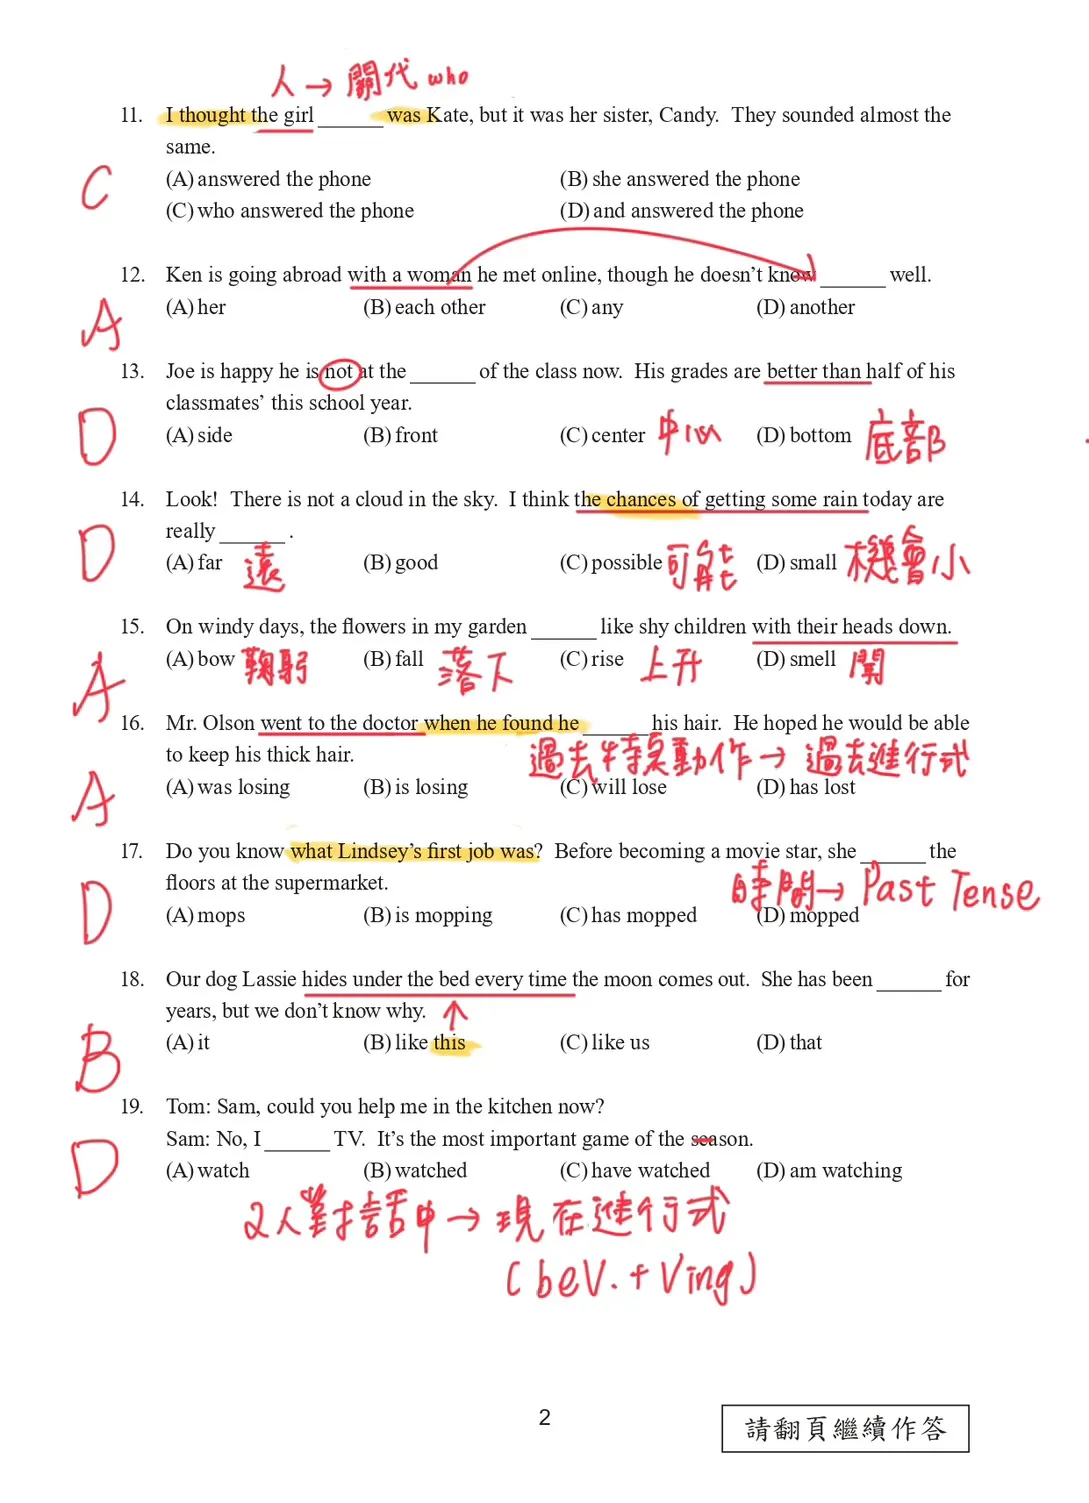 人→關代 who
11. I thought the girl ______ was Kate, but it was her sister, Candy. They sounded almost the
same.
C
(A) answered the phone (B) she answered the phone
(C) who answered the phone (D) and answered the phone
12. Ken is going abroad with a woman he met online, though he doesn't know ______ well.
A
(A) her (B) each other (C) any (D) another
13. Joe is happy he is not at the ______ of the class now. His grades are better than half of his
classmates' this school year.
D
(A) side (B) front (C) center 中心 (D) bottom 底部
14. Look! There is not a cloud in the sky. I think the chances of getting some rain today are
really ______ .
D
(A) far 遠 (B) good (C) possible 可能 (D) small 機會小
15. On windy days, the flowers in my garden ______ like shy children with their heads down.
(A) bow 鞠躬 (B) fall 落下 (C) rise 上升 (D) smell 聞
A
16. Mr. Olson went to the doctor when he found he ______ his hair. He hoped he would be able
to keep his thick hair.
過去特定動作→過去進行式
A
(A) was losing (B) is losing (C) will lose (D) has lost
17. Do you know what Lindsey's first job was? Before becoming a movie star, she ______ the
floors at the supermarket.
時間→Past Tense
D
(A) mops (B) is mopping (C) has mopped (D) mopped
18. Our dog Lassie hides under the bed every time the moon comes out. She has been ______ for
years, but we don't know why.
B
(A) it (B) like this (C) like us (D) that
19. Tom: Sam, could you help me in the kitchen now?
Sam: No, I ______ TV. It's the most important game of the season.
D
(A) watch (B) watched (C) have watched (D) am watching
2人對話中→現在進行式
(beV.+Ving)
2
請翻頁繼續作答